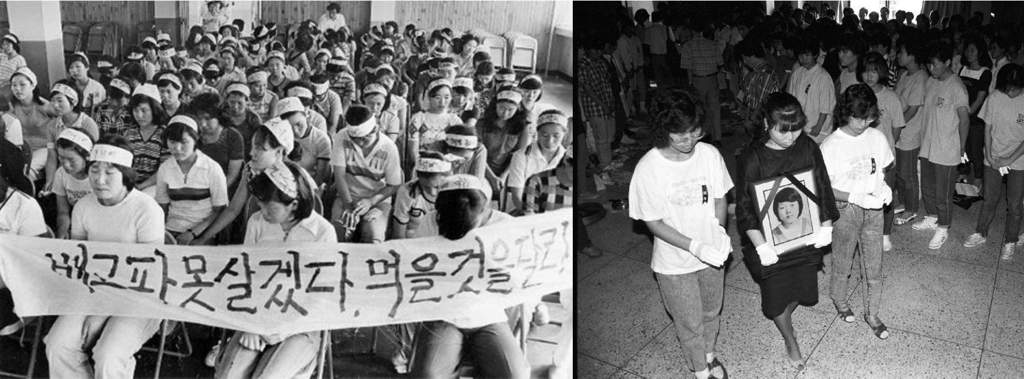 배고파 못살겠다, 먹을것을 달라!